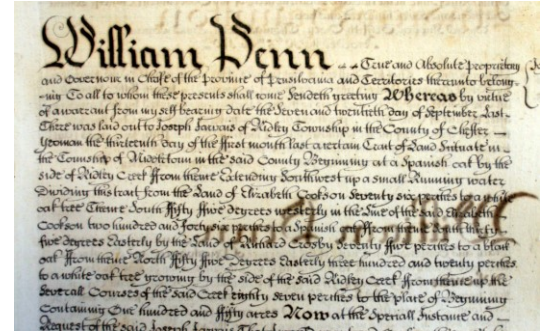 William Penn True and Absolute Proprietary
and Governour in Chiefe of the Province of Pensilvania and Territories thereunto belong-
-ing To all to whom these presents shall come Sendeth greeting Whereas by virtue
of a warrant from my self bearing date the Seven and twentieth day of September Last
There was laid out to Joseph of Ridley Township in the County of Chester
Yeoman the thirteenth day of the first month last a certain Tract of Land Situate in
the Township of in the said County Beginning at a Spanish oak by the
side of Ridley Creek ffrom thence Extending Northwest up a small Running water
Dividing this tract from the Land of Elizabeth Cookson Seventy six perches to a white
oak tree Thence South ffifty ffive degrees westerly in the Line of the said Elizabeth
Cookson two hundred and forty six perches to a Spanish oak ffrom thence South thirty
five degrees Easterly by the Land of Richard Crosby Seventy ffive perches to a black
oak ffrom thence North ffifty ffive Degrees Easterly three hundred and twenty perches
to a white oak tree growing by the side of the said Ridley Creek ffrom thence up the
severall Courses of the said Creek eighty seven perches to the place of Beginning
Containing One hundred and ffifty acres Now at the Speciall Instance and
Request of the said Joseph